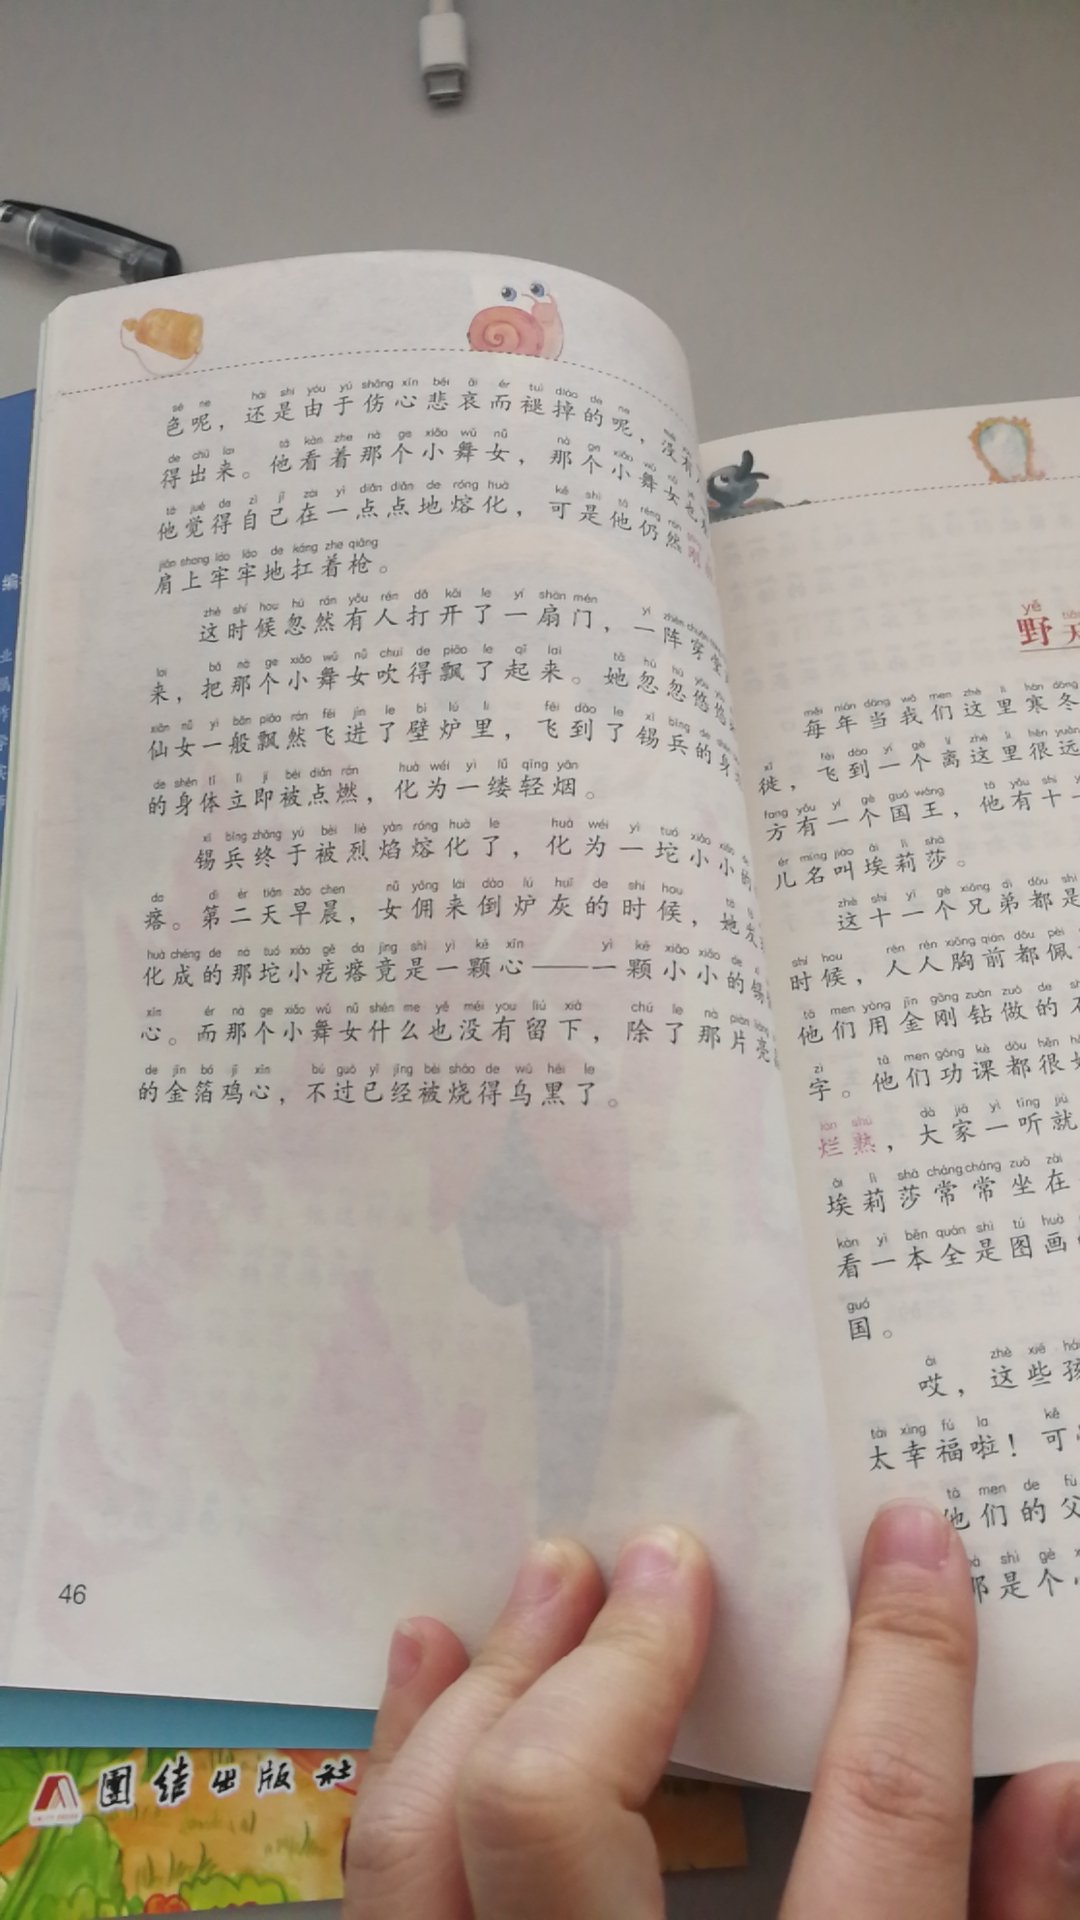 色呢，还是由于伤心悲哀而褪掉的呢，没有
得出来。他看着那个小舞女，那个小舞女也
他觉得自己在一点点地熔化，可是他仍然
肩上牢牢地扛着枪。
这时候忽然有人打开了一扇门，一阵穿堂
来，把那个小舞女吹得飘了起来。她忽忽悠悠
仙女一般飘然飞进了壁炉里，飞到了锡兵的身
的身体立即被点燃，化为一缕轻烟。
锡兵终于被烈焰熔化了，化为一坨小小的
瘩。第二天早晨，女佣来倒炉灰的时候，她发
化成的那坨小疙瘩竟是一颗心——一颗小小的锡
心。而那个小舞女什么也没有留下，除了那片亮
的金箔鸡心，不过已经被烧得乌黑了。
46
野
每年当我们这里寒冬
徙，飞到一个离这里很远
方有一个国王，他有十一
儿名叫埃莉莎。
这十一个兄弟都是
时候，人人胸前都佩
他们用金刚钻做的石
字。他们功课都很好
烂熟，大家一听就
埃莉莎常常坐在
看一本全是图画
国。
哎，这些孩
太幸福啦！可
他们的父
那是个
團结出版社